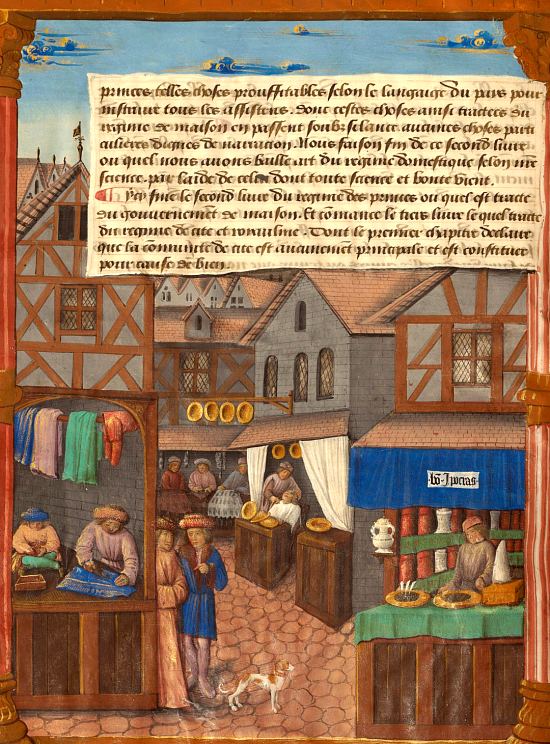 princes telles choses prouffitables selon le langaige du pays pour
instruire tous les assistens. donc cestes choses ainsi traictees du
regime de maison en passent soubz silance aucunes choses parti
culieres dignes de narracion. Nous faison fin de ce second livre
ou quel nous avons baille art du regime domestique selon nre
science. par laide de celui dont toute science et bonte vient.
Ycy fine le second livre du regime des princes ou quel est traicte
du gouvernement de maison. Et comance le tiers livre le quel traicte
du regime de cite et royaulme. Dont le premier chapitre declaire
que la comunite de cite est aucunement principale et est constituee
pour cause de bien.